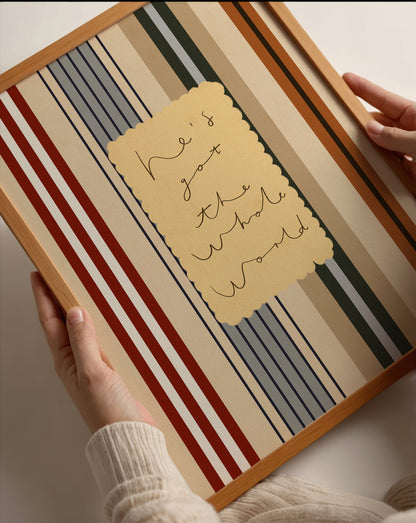 he's
got
the
whole
World